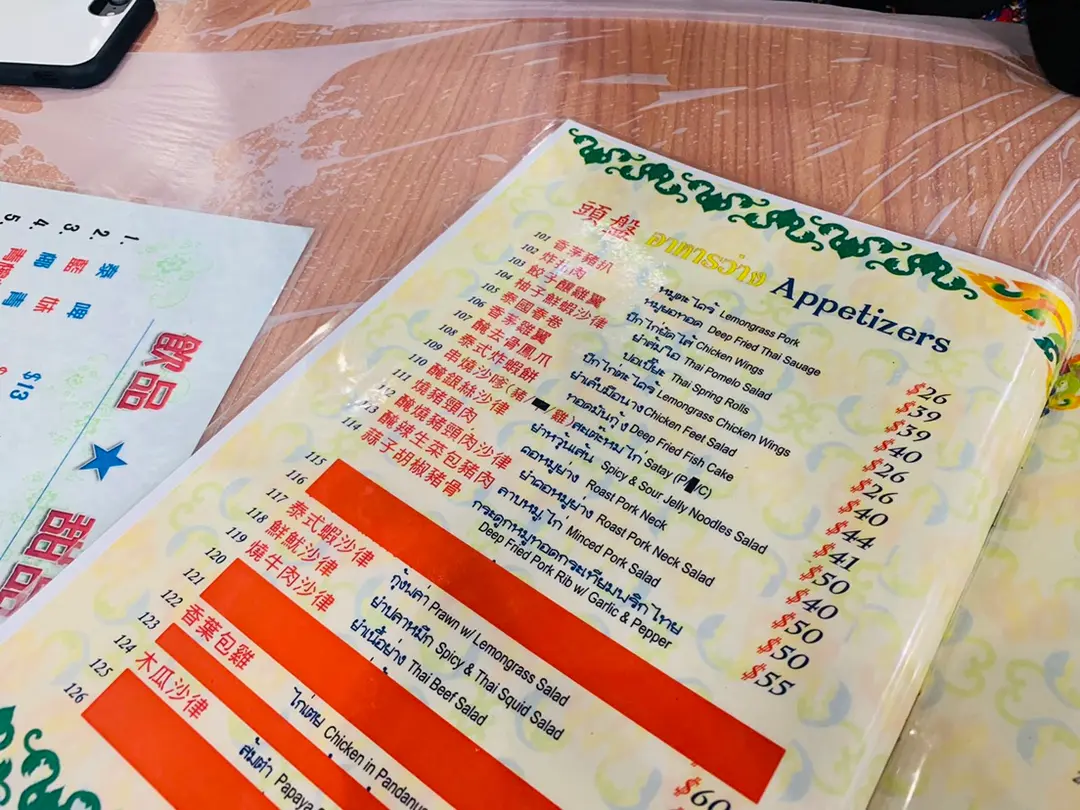 頭盤 อาหารว่าง Appetizers
101 香茅豬扒 หมูตะไคร้ Lemongrass Pork $26
102 炸扎肉 หมูยอทอด Deep Fried Thai Sausage $39
103 餃子釀雞翼 ปีกไก่ยัดไส้ Chicken Wings $39
104 柚子鮮蝦沙律 ยำส้มโอ Thai Pomelo Salad $40
105 泰國春卷 ปอเปี๊ยะ Thai Spring Rolls $26
106 香茅雞翼 ปีกไก่ตะไคร้ Lemongrass Chicken Wings $26
107 醃去骨鳳爪 ยำเล็บมือนาง Chicken Feet Salad $40
108 泰式炸蝦餅 ทอดมันกุ้ง Deep Fried Fish Cake $44
109 串燒沙嗲(豬/ /雞) สะเต๊ะหมู ไก่ Satay (P/ /C) $41
110 醃銀絲沙律 ยำวุ้นเส้น Spicy & Sour Jelly Noodles Salad $50
111 燒豬頸肉 คอหมูย่าง Roast Pork Neck $40
112 醃燒豬頸肉沙律 ยำคอหมูย่าง Roast Pork Neck Salad $50
113 醃辣生菜包豬肉 ลาบหมู ไก่ Minced Pork Salad $50
114 蒜子胡椒豬骨 กระดูกหมูทอดกระเทียมพริกไทย $55
Deep Fried Pork Rib w/ Garlic & Pepper
115
116
117 泰式蝦沙律 กุ้งพล่า Prawn w/ Lemongrass Salad $60
118 鮮魷沙律 ยำปลาหมึก Spicy & Thai Squid Salad
119 燒牛肉沙律 ยำเนื้อย่าง Thai Beef Salad
120
121
122 香葉包雞 ไก่เตย Chicken in Pandanu
123
124 木瓜沙律 ส้มตำ Papaya
125
126
1.
2.
3.
4.
5.
$13
飲品
★
甜品